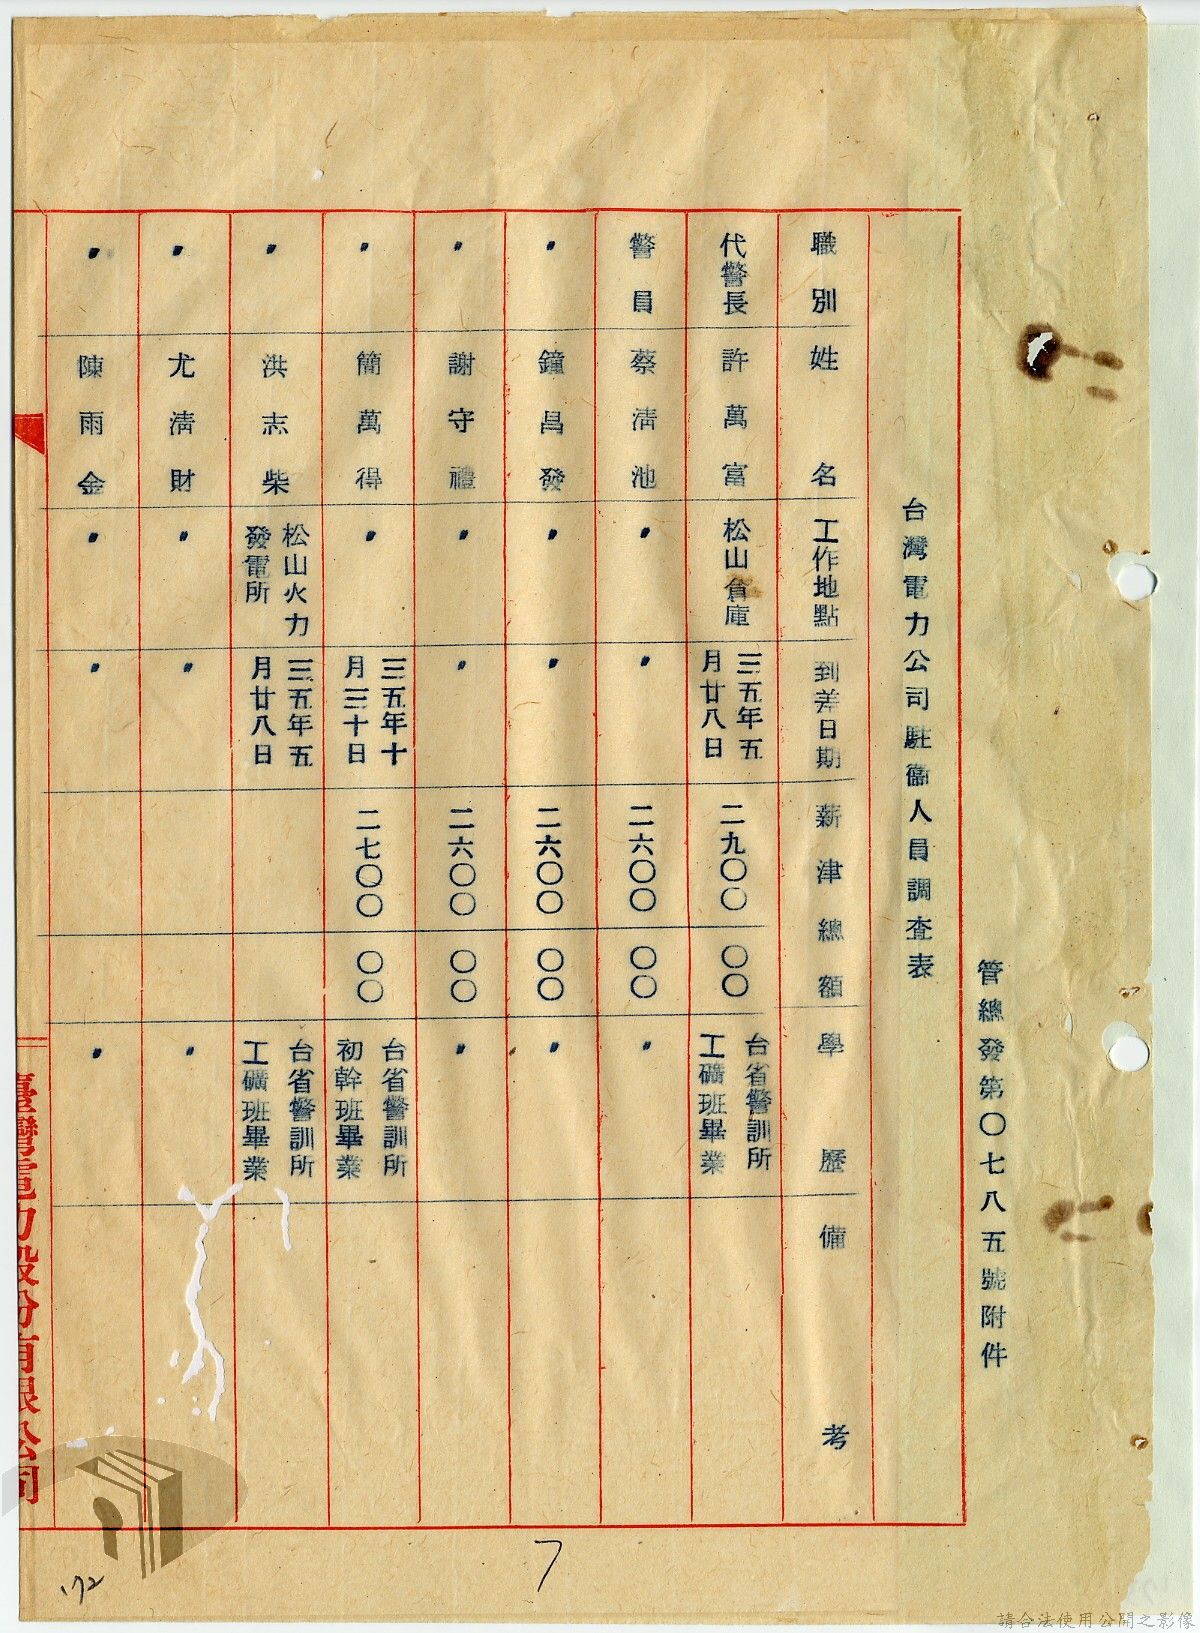 管總發第〇七八五號附件
台灣電力公司駐衞人員調查表
職別 姓名 工作地點 到差日期 薪津總額 學歷 備考
代警長 許萬富 松山倉庫 三五年五月廿八日 二九〇〇 〇〇 台省警訓所工礦班畢業
警員 蔡淸池 〃 〃 二六〇〇 〇〇 〃
〃 鐘昌發 〃 〃 二六〇〇 〇〇 〃
〃 謝守禮 〃 〃 二六〇〇 〇〇 〃
〃 簡萬得 〃 三五年十月三十日 二七〇〇 〇〇 台省警訓所初幹班畢業
〃 洪志柴 松山火力發電所 三五年五月廿八日 台省警訓所工礦班畢業
〃 尤淸財 〃 〃 〃
〃 陳雨金 〃 〃 〃
臺灣電力股份有限公司
7
172
請合法使用公開之影像